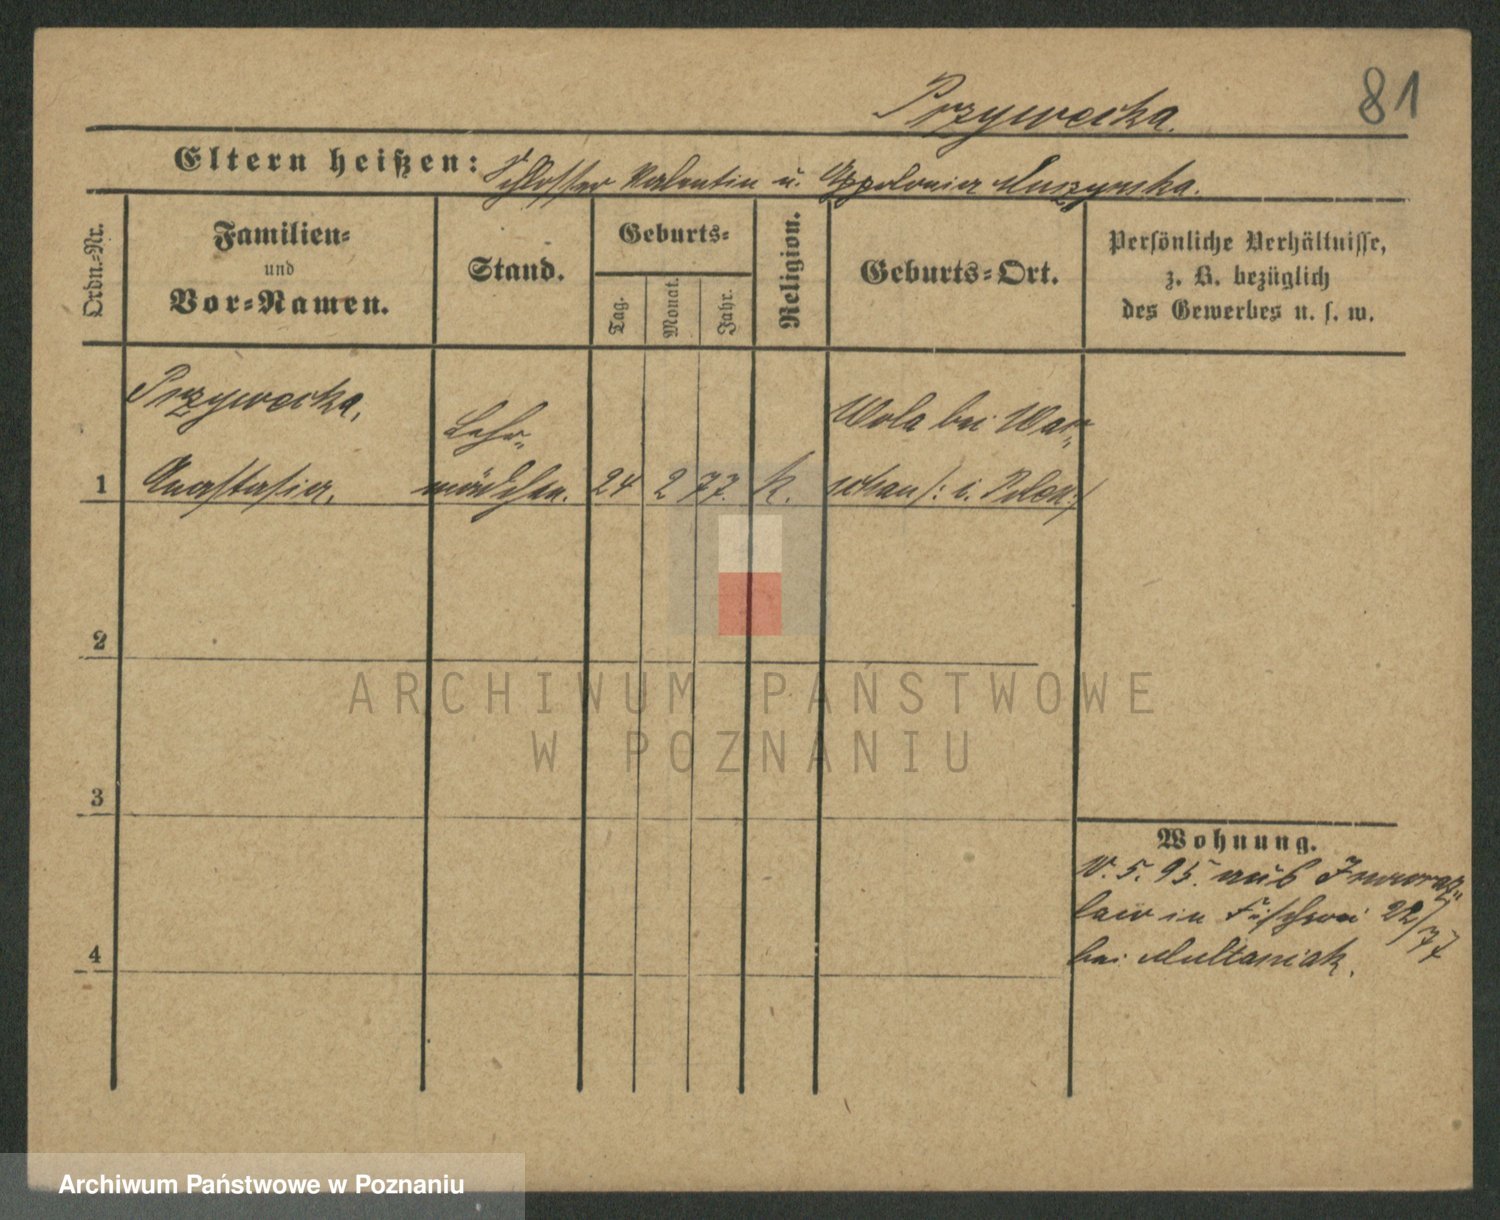 81
Przywecka.
Eltern heißen: Schlosser Valentin u. Appolonia Muszynska.
Ordn.-Nr.
Familien-
und
Vor-Namen.
Stand.
Geburts-
Tag.
Monat.
Jahr.
Religion.
Geburts-Ort.
Persönliche Verhältnisse,
z. B. bezüglich
des Gewerbes u. s. w.
Przywecka,
Lehr-
Wola bei War-
1 Anastasia. mädchen. 24 2 77. K. schau /: i. Polen :/
2
3
4
Wohnung.
5. 95. aus Inowraz-
law in Fischerei 22/77
bei Multaniak.
ARCHIWUM PAŃSTWOWE
W POZNANIU
Archiwum Państwowe w Poznaniu